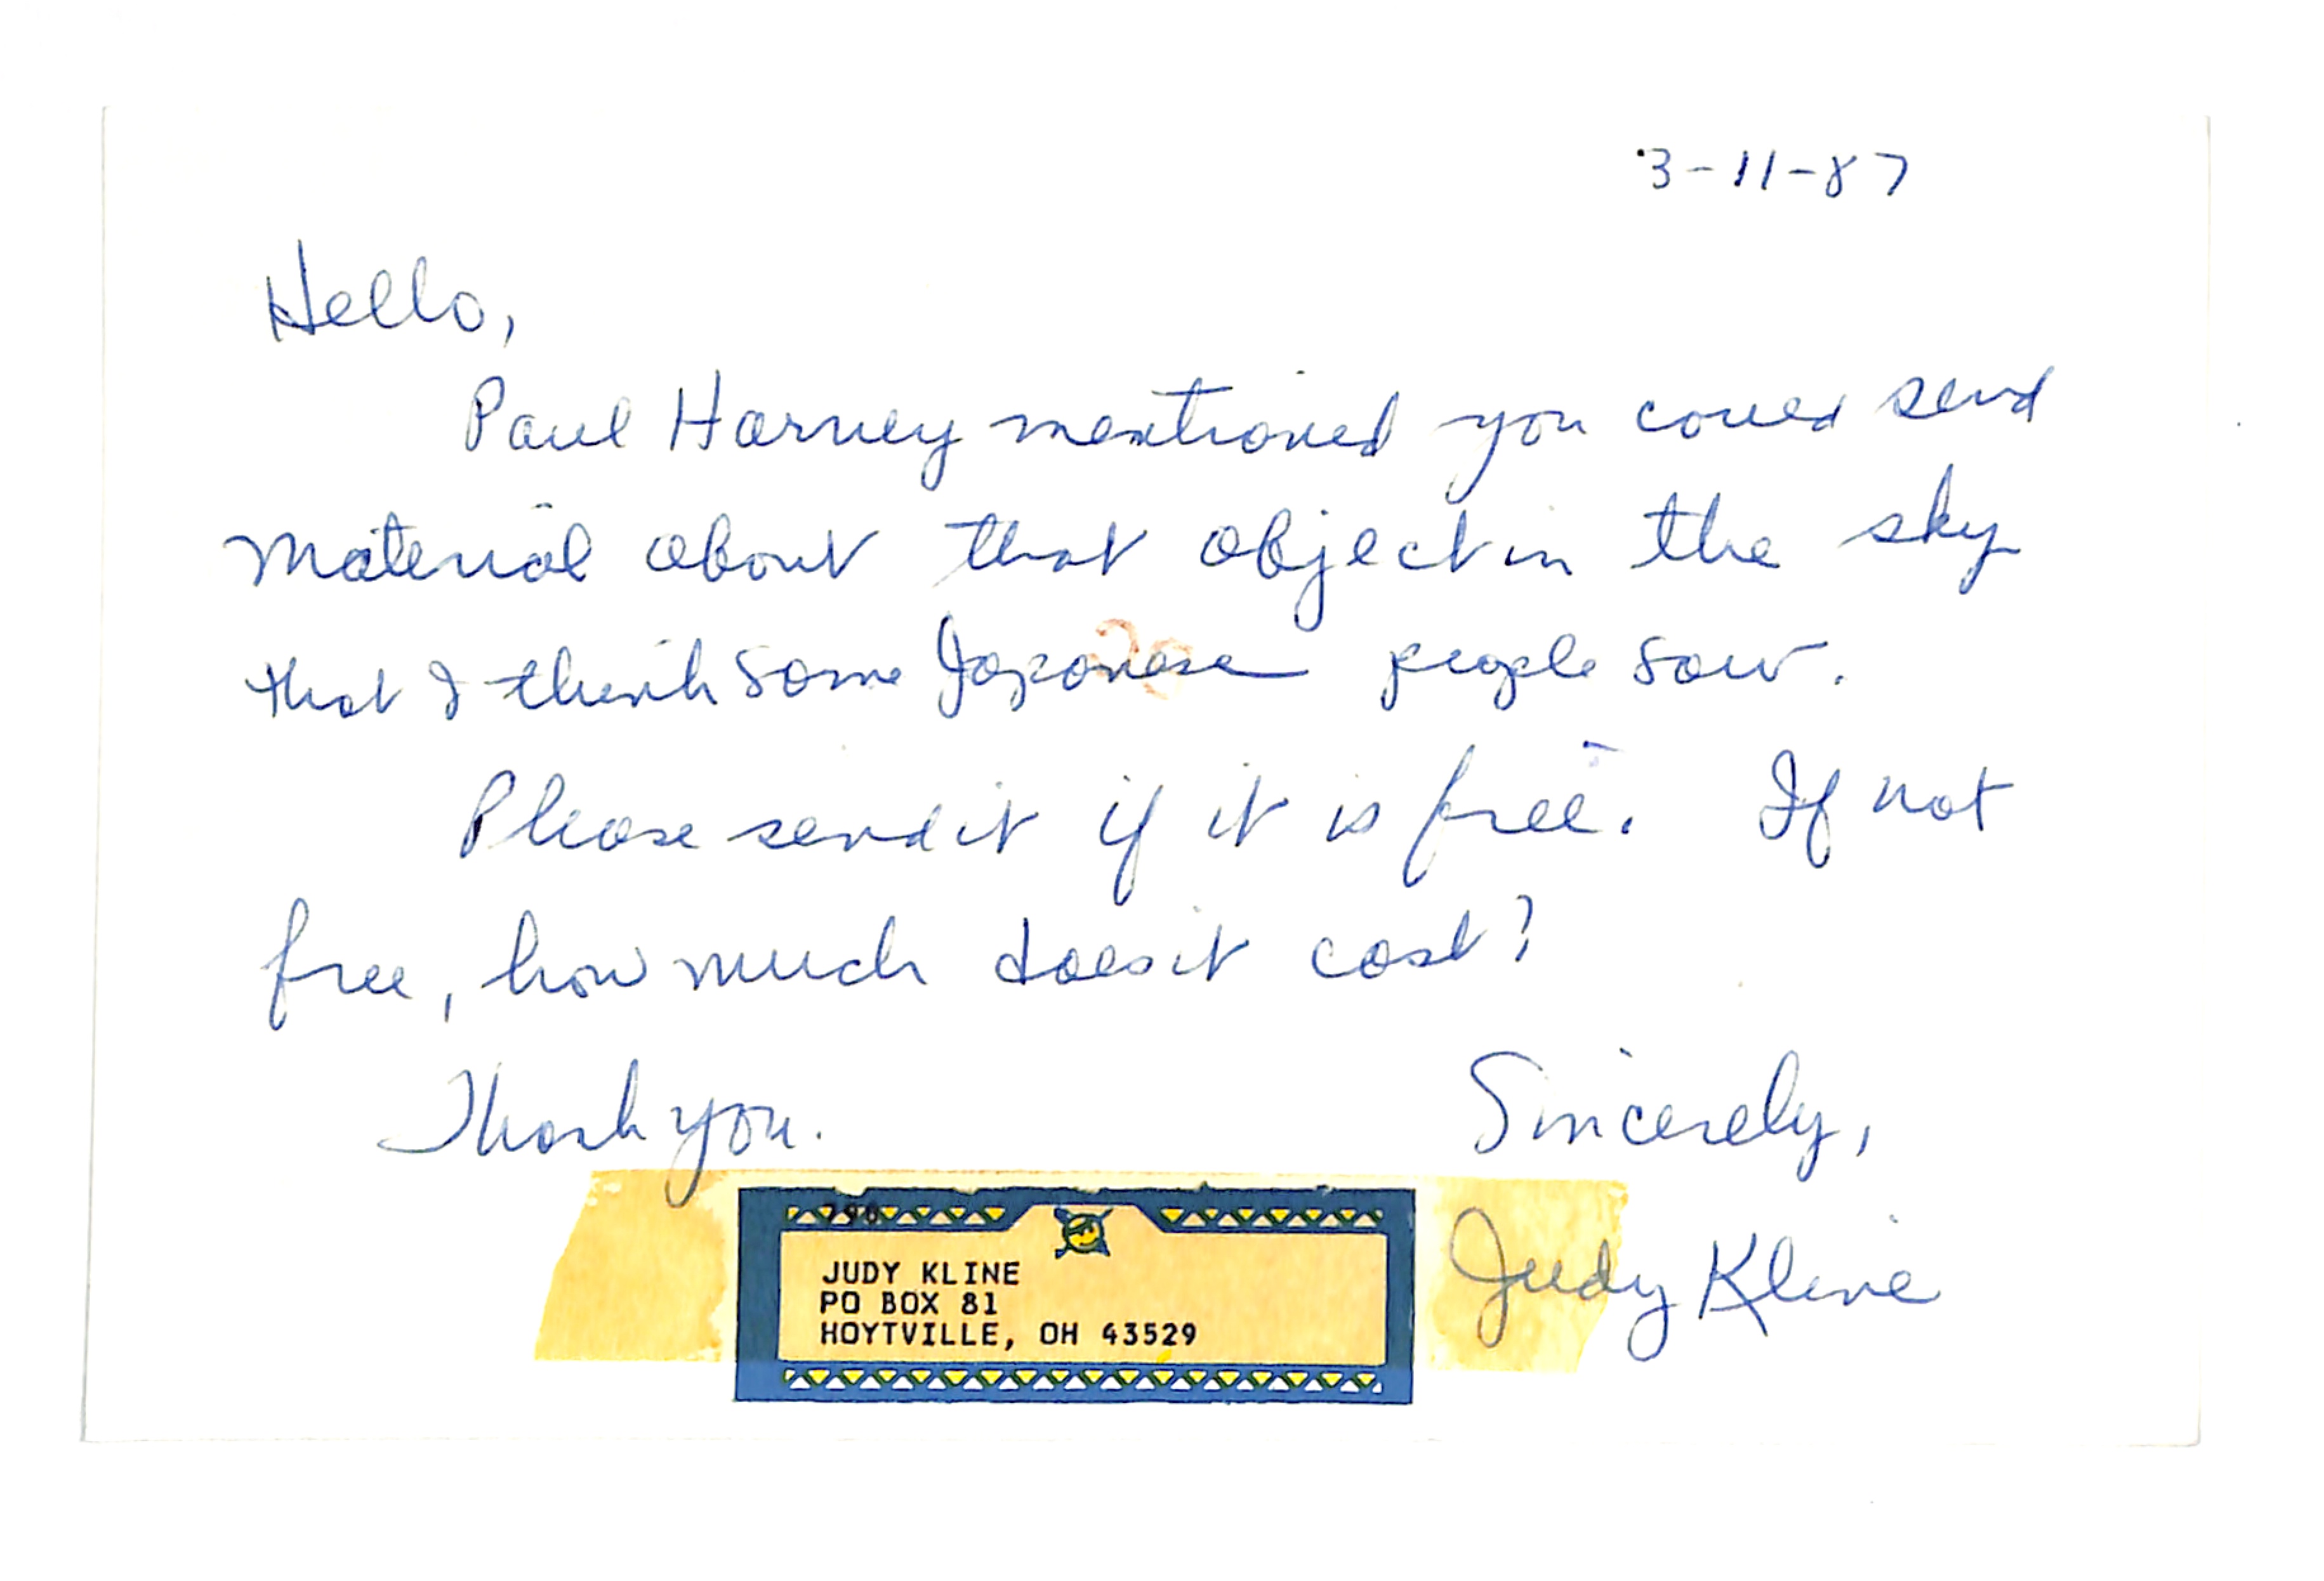 3-11-87
Hello,
Paul Harvey mentioned you could send
material about that object in the sky
that I think some Japanese people saw.
Please send it if it is free. If not
free, how much does it cost?
Thank you.
Sincerely,
790
JUDY KLINE
PO BOX 81
HOYTVILLE, OH 43529
Judy Kline